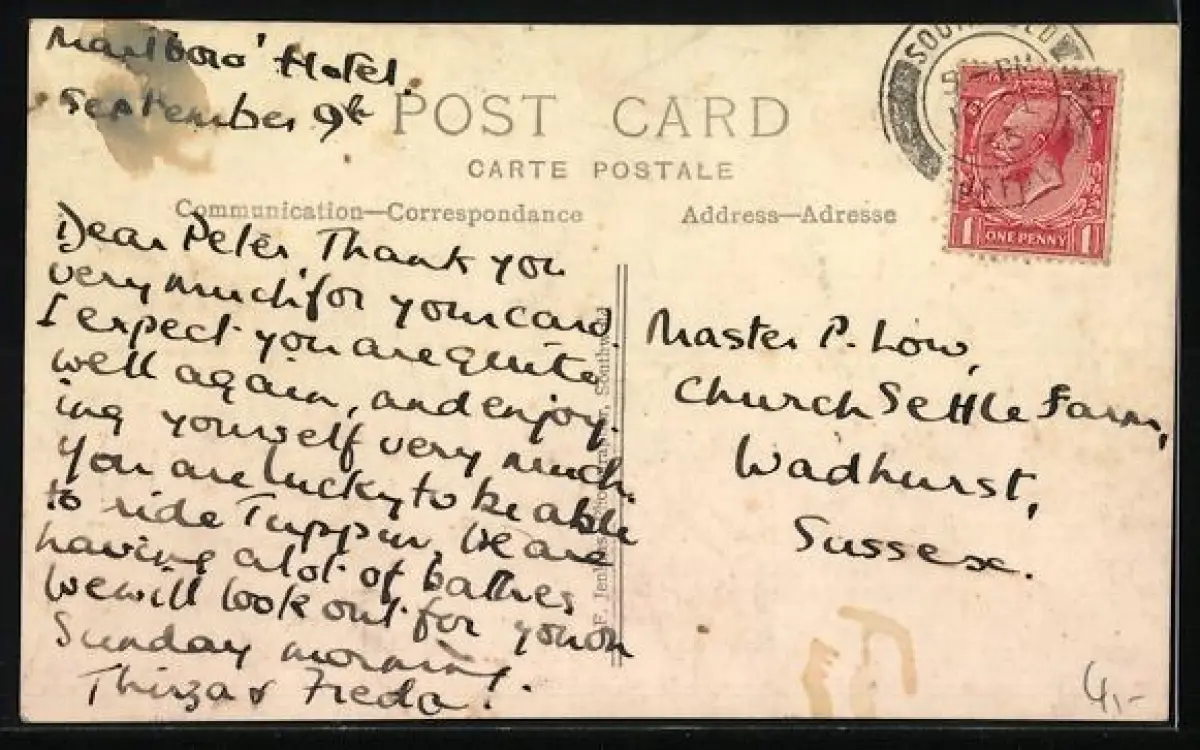 Marlboro' Hotel.
September 9th
POST CARD
CARTE POSTALE
Communication—Correspondance
Address—Adresse
Dear Peter, Thank you
very much for your card.
I expect you are quite
well again, and enjoy-
ing yourself very much.
You are lucky to be able
to ride Tuppin. We are
having a lot of bathes
We will look out for you on
Sunday morning.
Thirza & Freda.
Master P. Low,
Church Settle Farm,
Wadhurst,
Sussex.
SOUTHWOLD
PM
ONE PENNY
1 1
F. Jenkins Photographer, Southwold
4,-